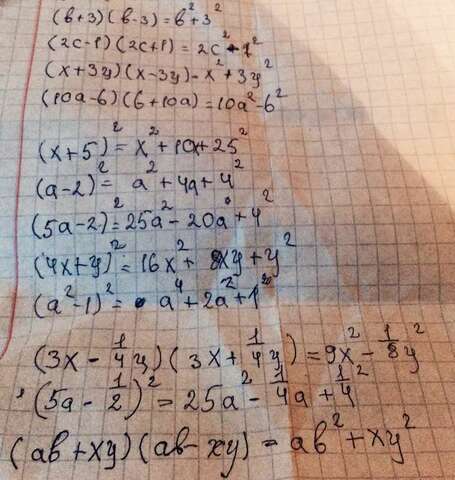 (в+3)(в-3)=в²+3²
(2c-1)(2c+1)=2c²-1²
(x+3y)(x-3y)-x²+3y²
(10a-6)(6+10a)=10a²-6²
(x+5)²=x²+10x+25²
(a-2)²=a²+4a+4²
(5a-2)²=25a²-20a+4²
(4x+y)²=16x²+8xy+y²
(a²-1)²=a⁴+2a²+1²
(3x-1/4y)(3x+1/4y)=9x²-1/8y²
(5a-1/2)²=25a²-1/4a+1/4²
(ab+xy)(ab-xy)=ab²+xy²